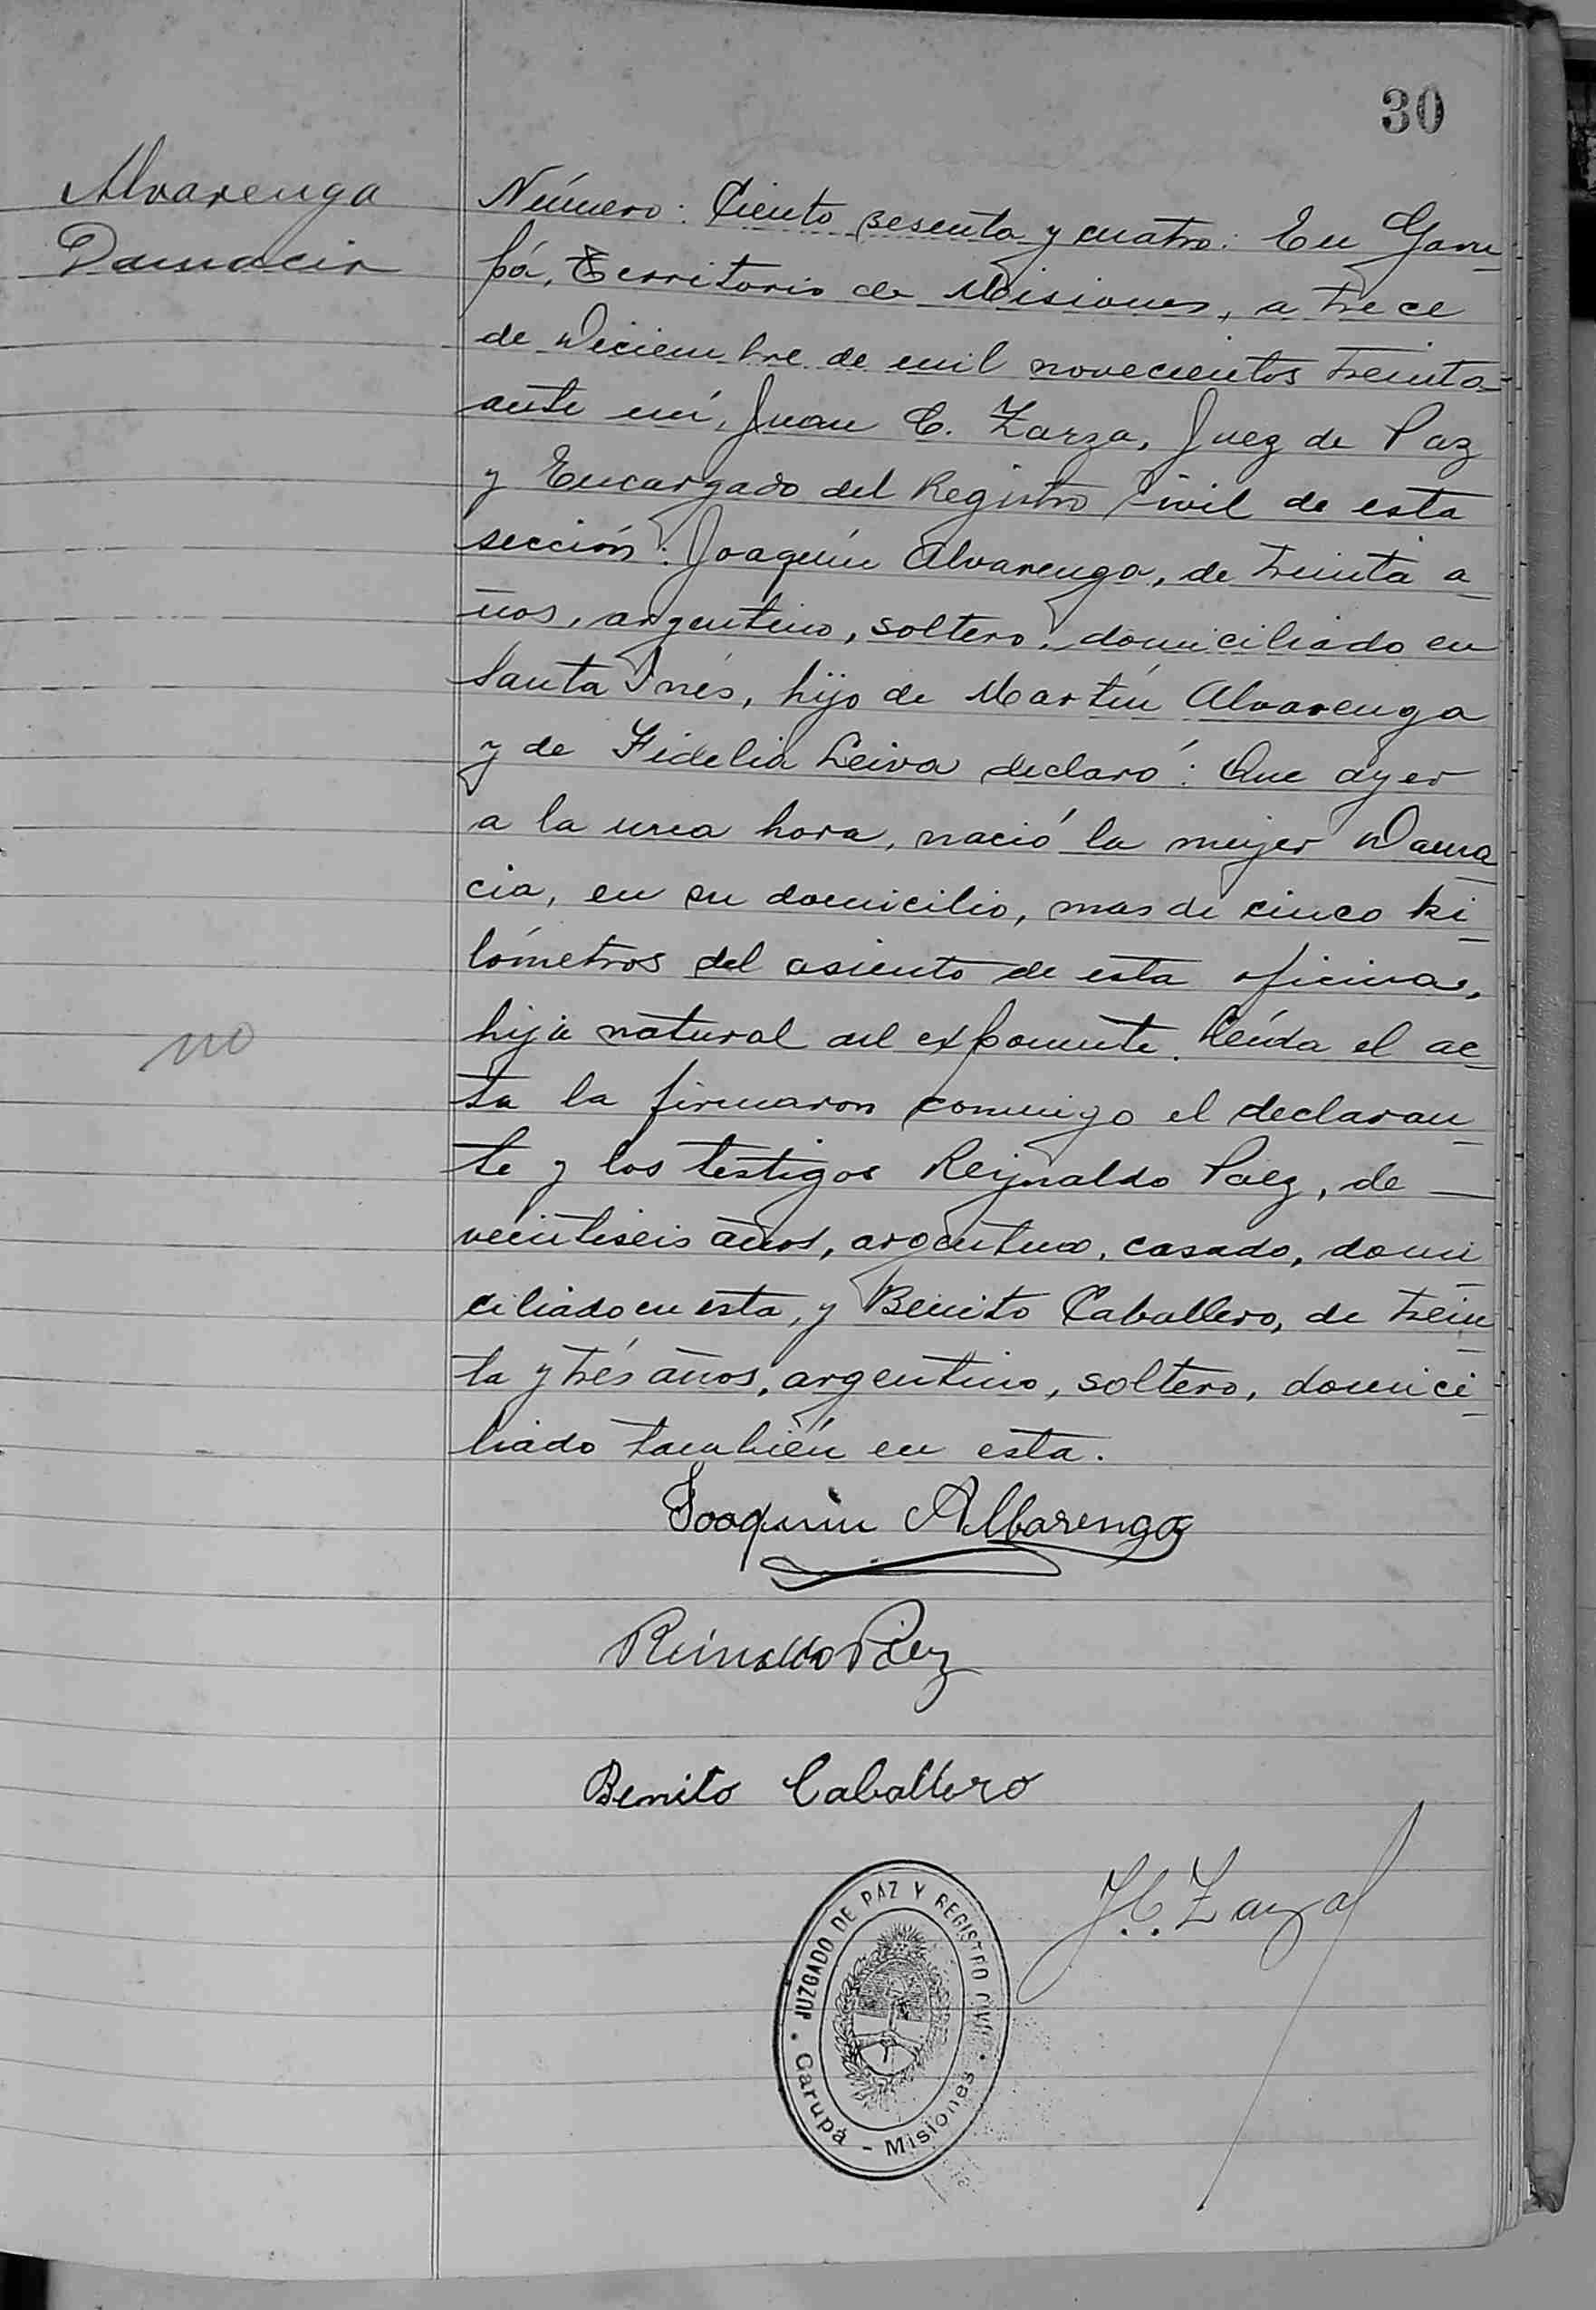 30
Alvarenga
Damacia
Número: Ciento sesenta y cuatro: En Garu-
pá, Territorio de Misiones, a trece
de Diciembre de mil novecientos treinta-
ante mí, Juan C. Zarza, Juez de Paz
y Encargado del Registro Civil de esta
sección: Joaquín Alvarenga, de treinta a-
ños, argentino, soltero, domiciliado en
Santa Inés, hijo de Martín Alvarenga
y de Fidelia Leiva declaró: Que ayer
a la una hora, nació la mujer Dama-
cia, en su domicilio, mas de cinco ki-
lómetros del asiento de esta oficina,
hija natural del exponente. Leída el ac-
ta la firmaron conmigo el declaran-
te y los testigos Reynaldo Paez, de —
veintiseis años, argentino, casado, domi-
ciliado en esta, y Benito Caballero, de trein-
ta y trés años, argentino, soltero, domici-
liado también en esta.
no
Joaquin Albarenga
Reinaldo Páez
Benito Caballero
J. C. Zarza
JUZGADO DE PAZ Y REGISTRO CIVIL
Garupá - Misiones